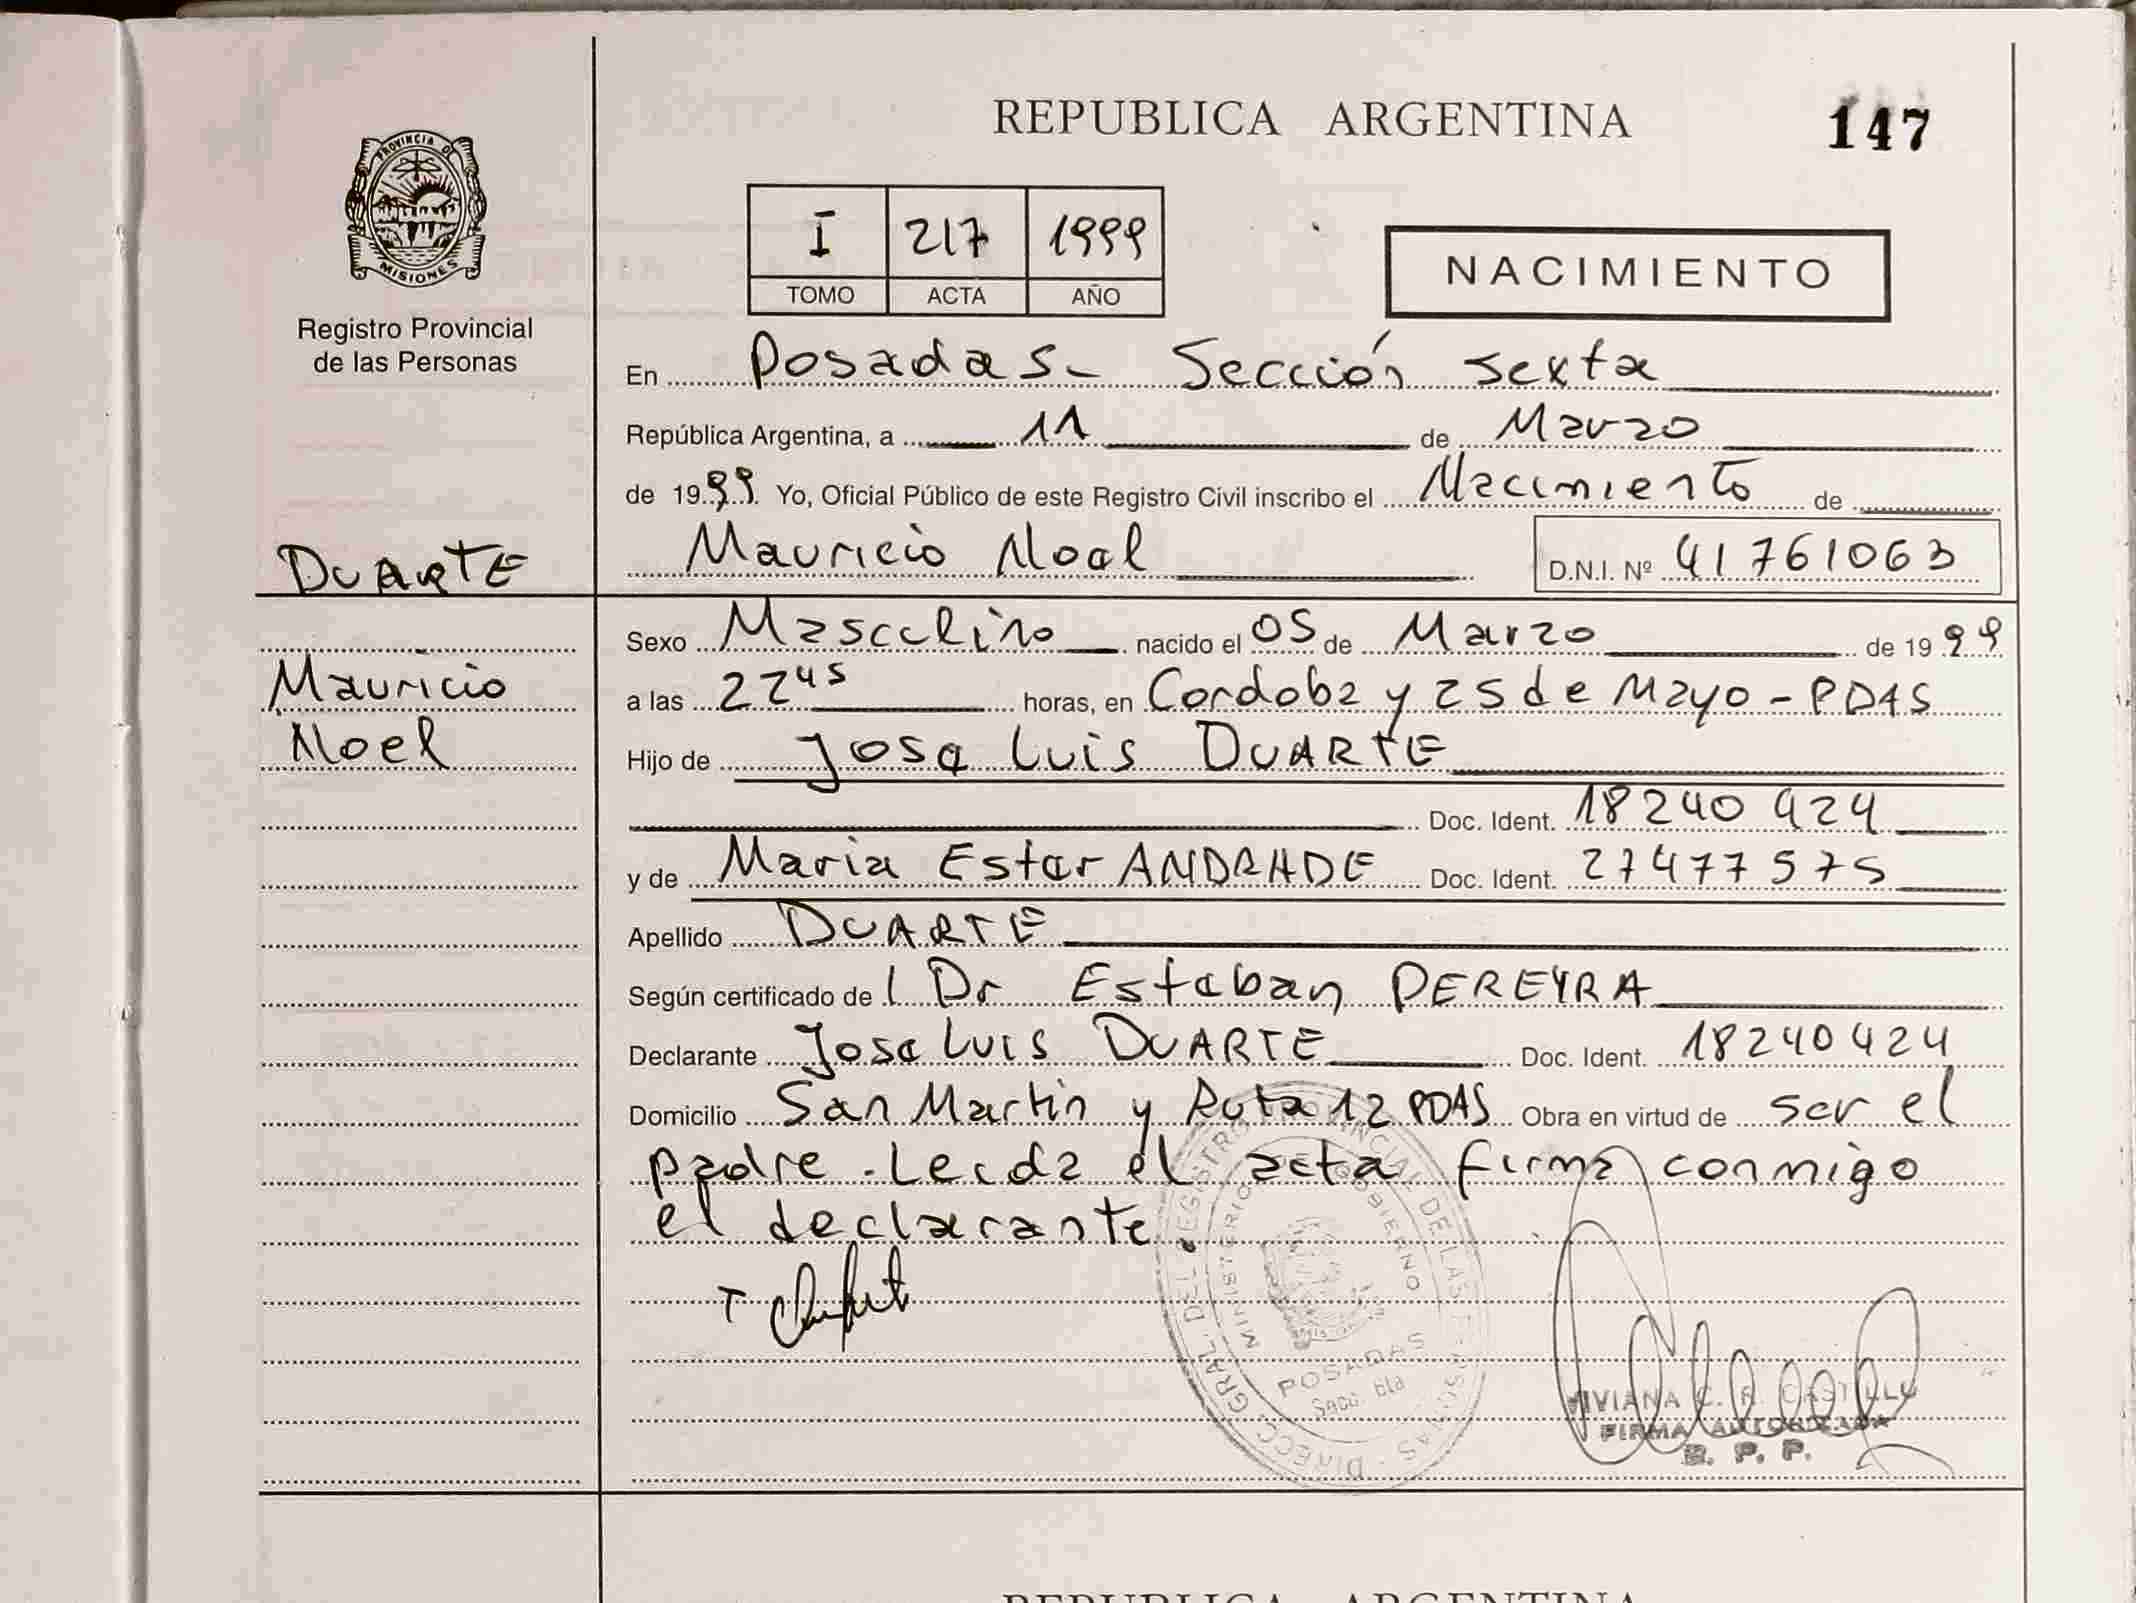 REPUBLICA ARGENTINA
147
PROVINCIA D
MISIONES
Registro Provincial
de las Personas
I 217 1999
TOMO ACTA AÑO
NACIMIENTO
En Posadas - Sección Sexta
República Argentina, a 11 de Marzo
de 1999 Yo, Oficial Público de este Registro Civil inscribo el Nacimiento de
DUARTE
Mauricio Noel D.N.I. Nº 41761063
Mauricio
Noel
Sexo Masculino nacido el 05 de Marzo de 1999
a las 22 45 horas, en Cordoba y 25 de Mayo - PDAS
Hijo de Jose Luis DUARTE
Doc. Ident. 18240424
y de Maria Ester ANDRADE Doc. Ident. 27477575
Apellido DUARTE
Según certificado de l Dr Esteban PEREYRA
Declarante Jose Luis DUARTE Doc. Ident. 18240424
Domicilio San Martin y Ruta 12 PDAS Obra en virtud de ser el
padre. Leida el acta firma conmigo
el declarante.
DIRECC. GRAL. DEL REGISTRO PROVINCIAL DE LAS PERSONAS
MINISTERIO GOBIERNO
POSADAS
Secc. 6ta
VIVIANA C. R. CASTILLO
FIRMA AUTORIZADA
R. P. P.
REPUBLICA ARGENTINA